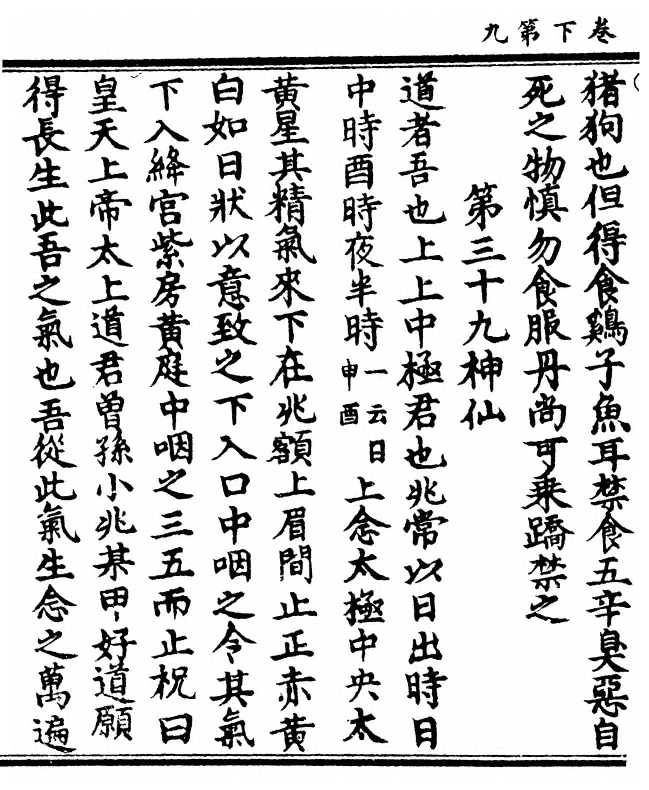 卷下第九
猪狗也但得食鷄子魚耳禁食五辛臭惡自
死之物慎勿食服丹尚可乗蹻禁之
第三十九神仙
道者吾也上上中極君也兆常以日出時日
中時酉時夜半時一云日申酉上念太極中央太
黄星其精氣來下在兆額上眉間止正赤黄
白如日狀以意致之下入口中咽之令其氣
下入絳宮紫房黄庭中咽之三五而止祝曰
皇天上帝太上道君曾孫小兆某甲好道願
得長生此吾之氣也吾從此氣生念之萬遍